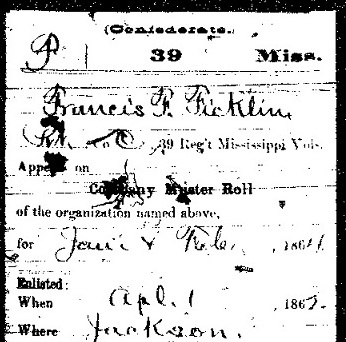 (Confederate.)
P 39 Miss.
Francis F. Ficklin
Co. C, 39 Reg't Mississippi Vols.
Appears on
Company Muster Roll
of the organization named above,
for Jan'y & Feb., 1864.
Enlisted:
When Apl. 1, 186
Where Jackson.